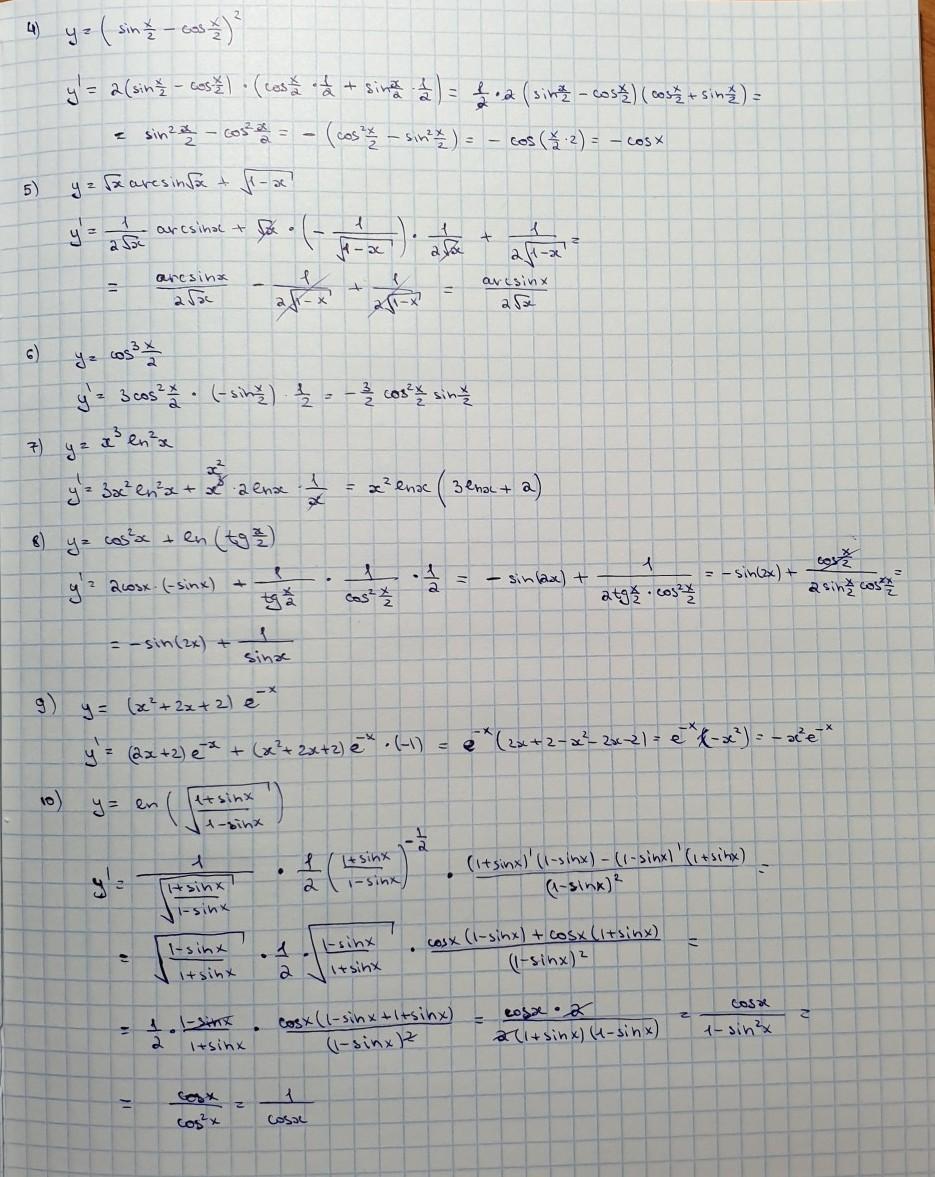 4) y = (sin x/2 − cos x/2)²
y' = 2(sin x/2 − cos x/2) · (cos x/2 · 1/2 + sin x/2 · 1/2) = 1/2 · 2 (sin x/2 − cos x/2)(cos x/2 + sin x/2) =
= sin² x/2 − cos² x/2 = − (cos² x/2 − sin² x/2) = − cos(x/2 · 2) = − cos x
5) y = √x arcsin√x + √(1−x)
y' = 1/(2√x) arcsinx + √x · (− 1/√(1−x)) · 1/(2√x) + 1/(2√(1−x)) =
= arcsinx/(2√x) − 1/(2√(1−x)) + 1/(2√(1−x)) = arcsinx/(2√x)
6) y = cos³ x/2
y' = 3cos² x/2 · (−sin x/2) · 1/2 = − 3/2 cos² x/2 sin x/2
7) y = x³ ln²x
y' = 3x² ln²x + x³ x² · 2lnx · 1/x = x² lnx (3lnx + 2)
8) y = cos²x + ln (tg x/2)
y' = 2cosx · (−sinx) + 1/(tg x/2) · 1/(cos² x/2) · 1/2 = − sin(2x) + 1/(2tg x/2 · cos² x/2) = − sin(2x) + cos x/2/(2sin x/2 cos² x/2) =
= − sin(2x) + 1/sinx
9) y = (x² + 2x + 2) e^(−x)
y' = (2x+2)e^(−x) + (x²+2x+2)e^(−x) · (−1) = e^(−x) (2x+2−x²−2x−2) = e^(−x) (−x²) = − x²e^(−x)
10) y = ln (√((1+sinx)/(1−sinx)))
y' = 1/√((1+sinx)/(1−sinx)) · 1/2 ((1+sinx)/(1−sinx))^(−1/2) · ((1+sinx)'(1−sinx) − (1−sinx)'(1+sinx))/(1−sinx)² =
= √((1−sinx)/(1+sinx)) · 1/2 · √((1−sinx)/(1+sinx)) · (cosx(1−sinx) + cosx(1+sinx))/(1−sinx)² =
= 1/2 · (1−sinx)/(1+sinx) · cosx(1−sinx+1+sinx)/(1−sinx)² = cosx · 2/(2(1+sinx)(1−sinx)) = cosx/(1−sin²x) =
= cosx/cos²x = 1/cosx